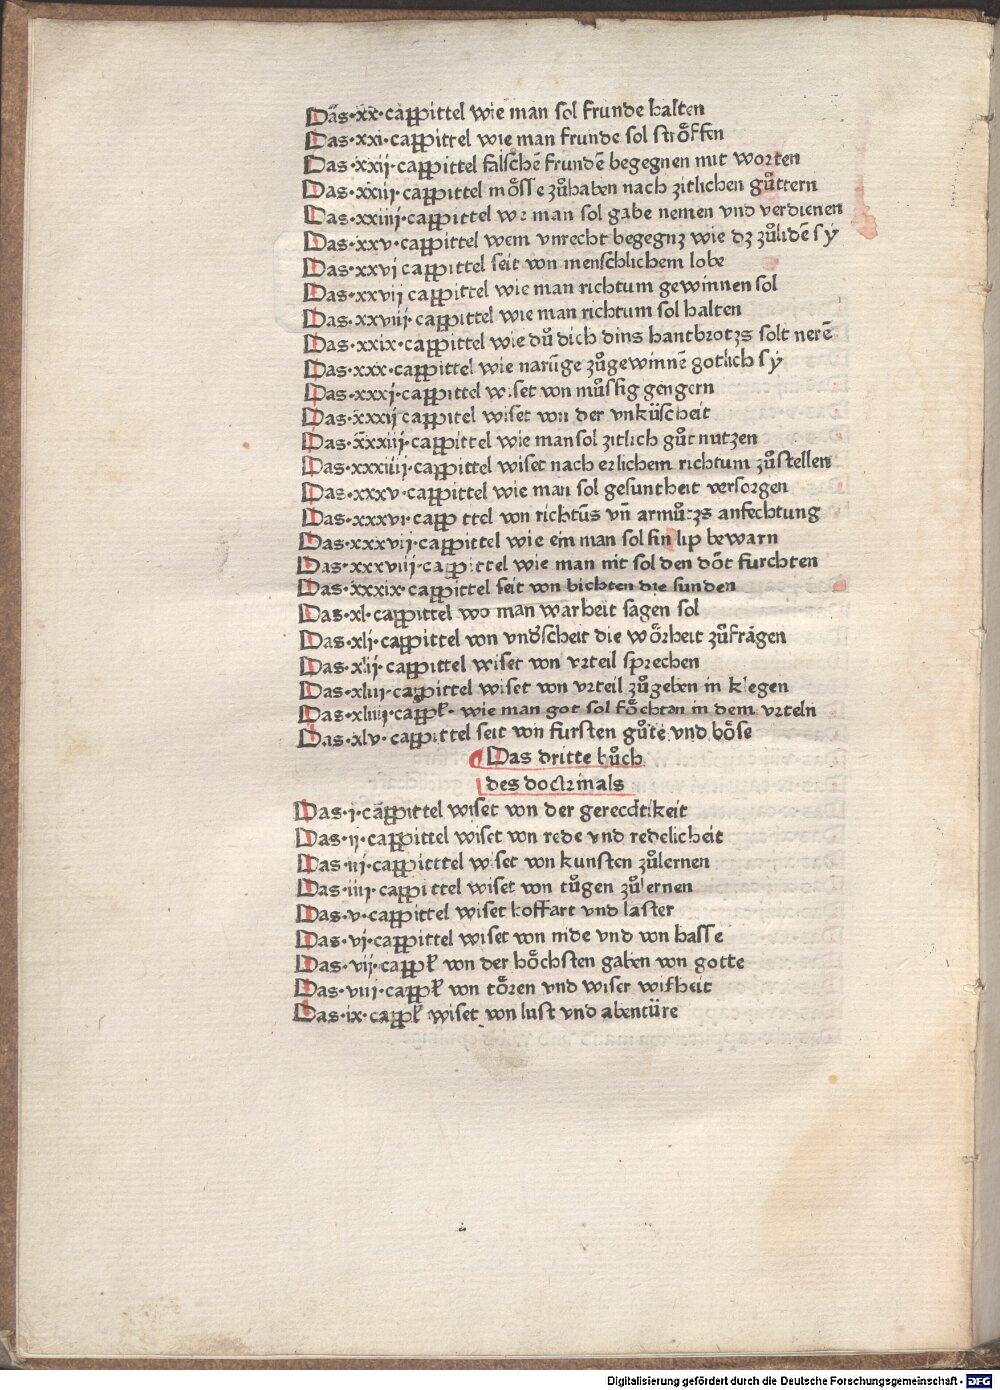 Das·xx·cappittel wie man sol frunde halten
Das·xxi·cappittel wie man frunde sol stroͤffen
Das·xxij·cappittel falschē frundē begegnen mit worten
Das·xxiij·cappittel moͤsse zuͦhaben nach zitlichen guͤttern
Das·xxiiij·cappittel wz man sol gabe nemen vnd verdienen
Das·xxv·cappittel wem vnrecht begegnz wie dz zuͦlidē sy
Das·xxvj cappittel seit von menschlichem lobe
Das·xxvij cappittel wie man richtum gewinnen sol
Das·xxviij·cappittel wie man richtum sol halten
Das·xxix·cappittel wie duͦ dich dins hantbrotzs solt nerē
Das·xxx·cappittel wie narūge zuͦgewinnē gotlich sy
Das·xxxj·cappittel wiset von muͤssig gengern
Das·xxxij cappitel wiset von der vnküscheit
Das·xxxiij·cappittel wie man sol zitlich guͦt nutzen
Das·xxxiiij·cappittel wiset nach erlichem richtum zuͦstellen
Das·xxxv·cappittel wie man sol gesuntheit versorgen
Das·xxxvi·capp ttel von richtūs vn̄ armuͦtzs anfechtung
Das·xxxvij·cappittel wie ein man sol sin lip bewarn
Das·xxxviij·cappittel wie man nit sol den dōt furchten
Das·xxxix·cappittel seit von bichten die sunden
Das·xl·cappittel wo man warheit sagen sol
Das·xlj·cappittel von vnd̄scheit die woͤrheit zuͦfrāgen
Das·xlij·cappittel wiset von vrteil sprechen
Das·xliij·cappittel wiset von vrteil zuͦgeben in klegen
Das·xliiij·cappł· wie man got sol foͤchten in dem vrteln
Das·xlv·cappittel seit von fursten guͤte vnd boͤse
Das dritte buͦch
des doctrinals
Das·j·cappittel wiset von der gerecdtikeit
Das·ij·cappittel wiset von rede vnd redelicheit
Das·iij·cappitttel wiset von kunsten zuͦlernen
Das·iiij·cappittel wiset von tuͦgen zuͦlernen
Das·v·cappittel wiset hoffart vnd laster
Das·vj·cappittel wiset von nide vnd von hasse
Das·vij·cappł von der hoͤchsten gaben von gotte
Das·viij·cappł von toͤren vnd wiser wisheit
Das·ix·cappł wiset von lust vnd abentüre
Digitalisierung gefördert durch die Deutsche Forschungsgemeinschaft - DFG